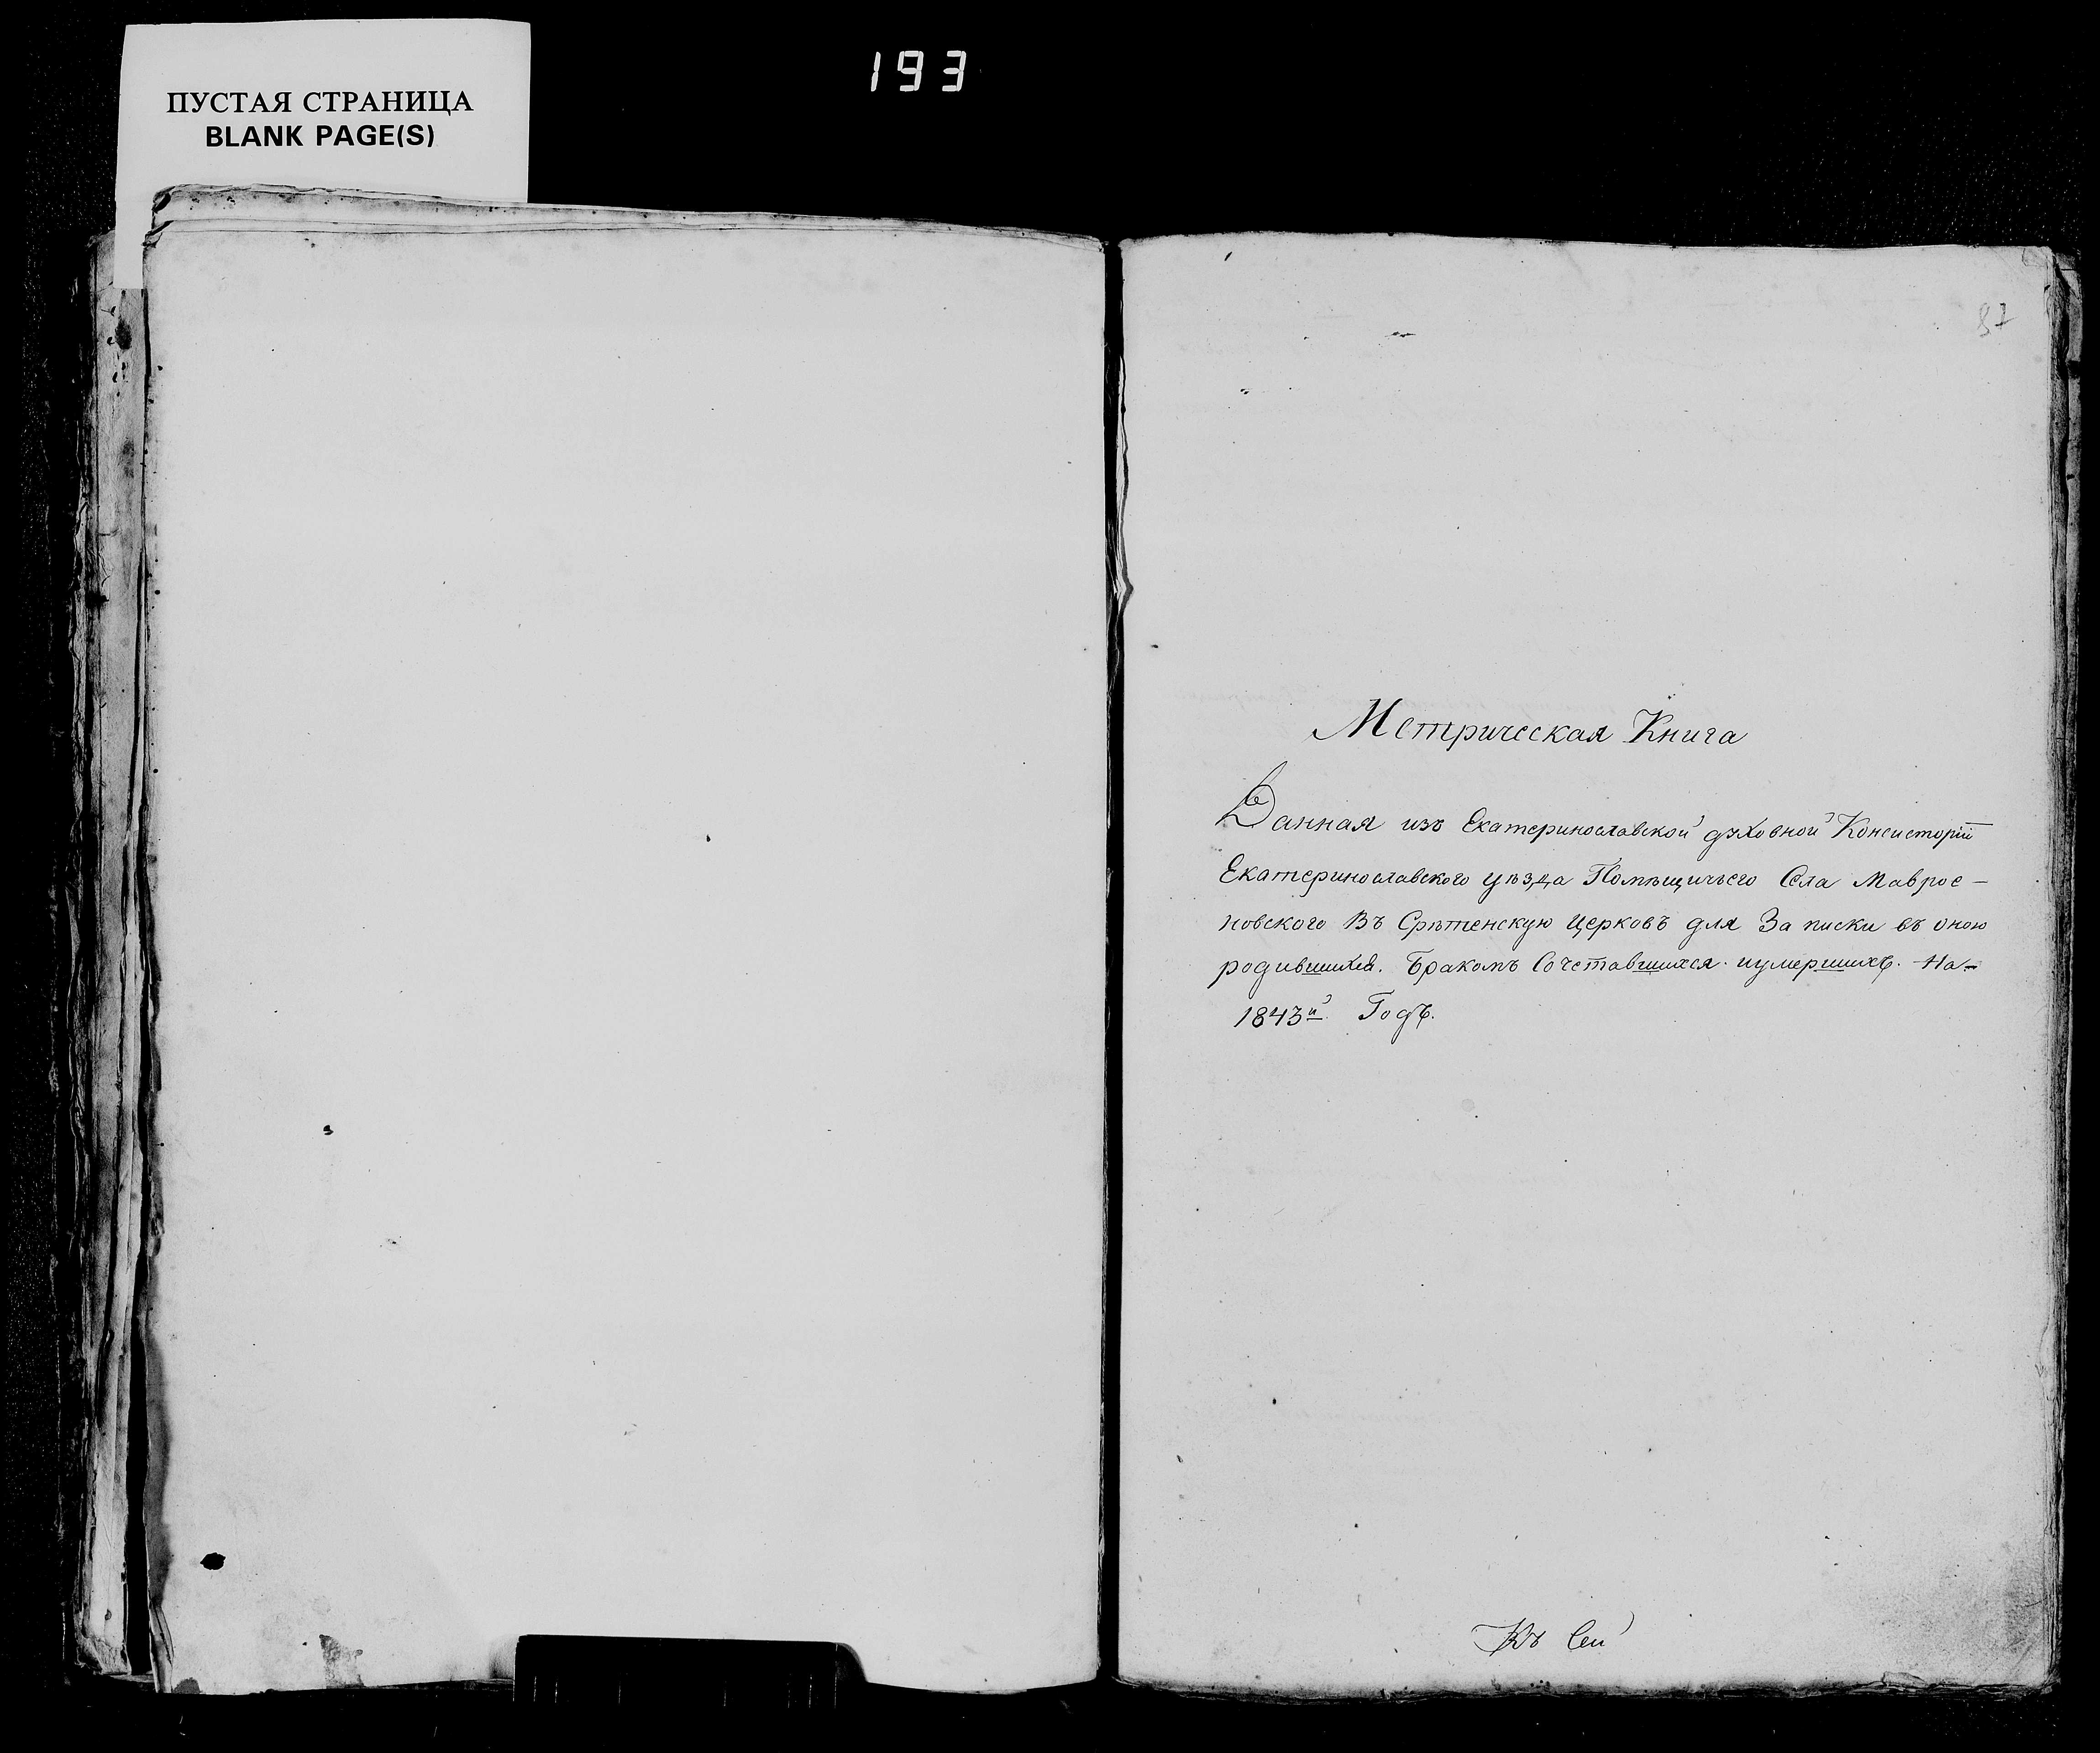 193
ПУСТАЯ СТРАНИЦА
BLANK PAGE(S)
Метрическая Книга
Данная изъ Екатеринославской духовной Консисторіи
Екатеринославского уѣзда Помѣщичьего Села Маврое-
новского Въ Срѣтенскую Церковъ для За писки въ оною
родившихся. Бракомъ Сочетавшихся. иумершихъ. На-
1843й Годъ.
Къ Сей